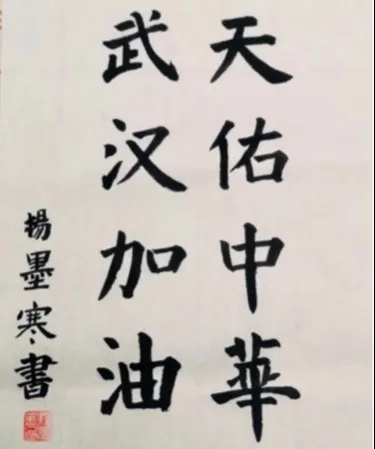 天佑中華
武汉加油
楊墨寒書